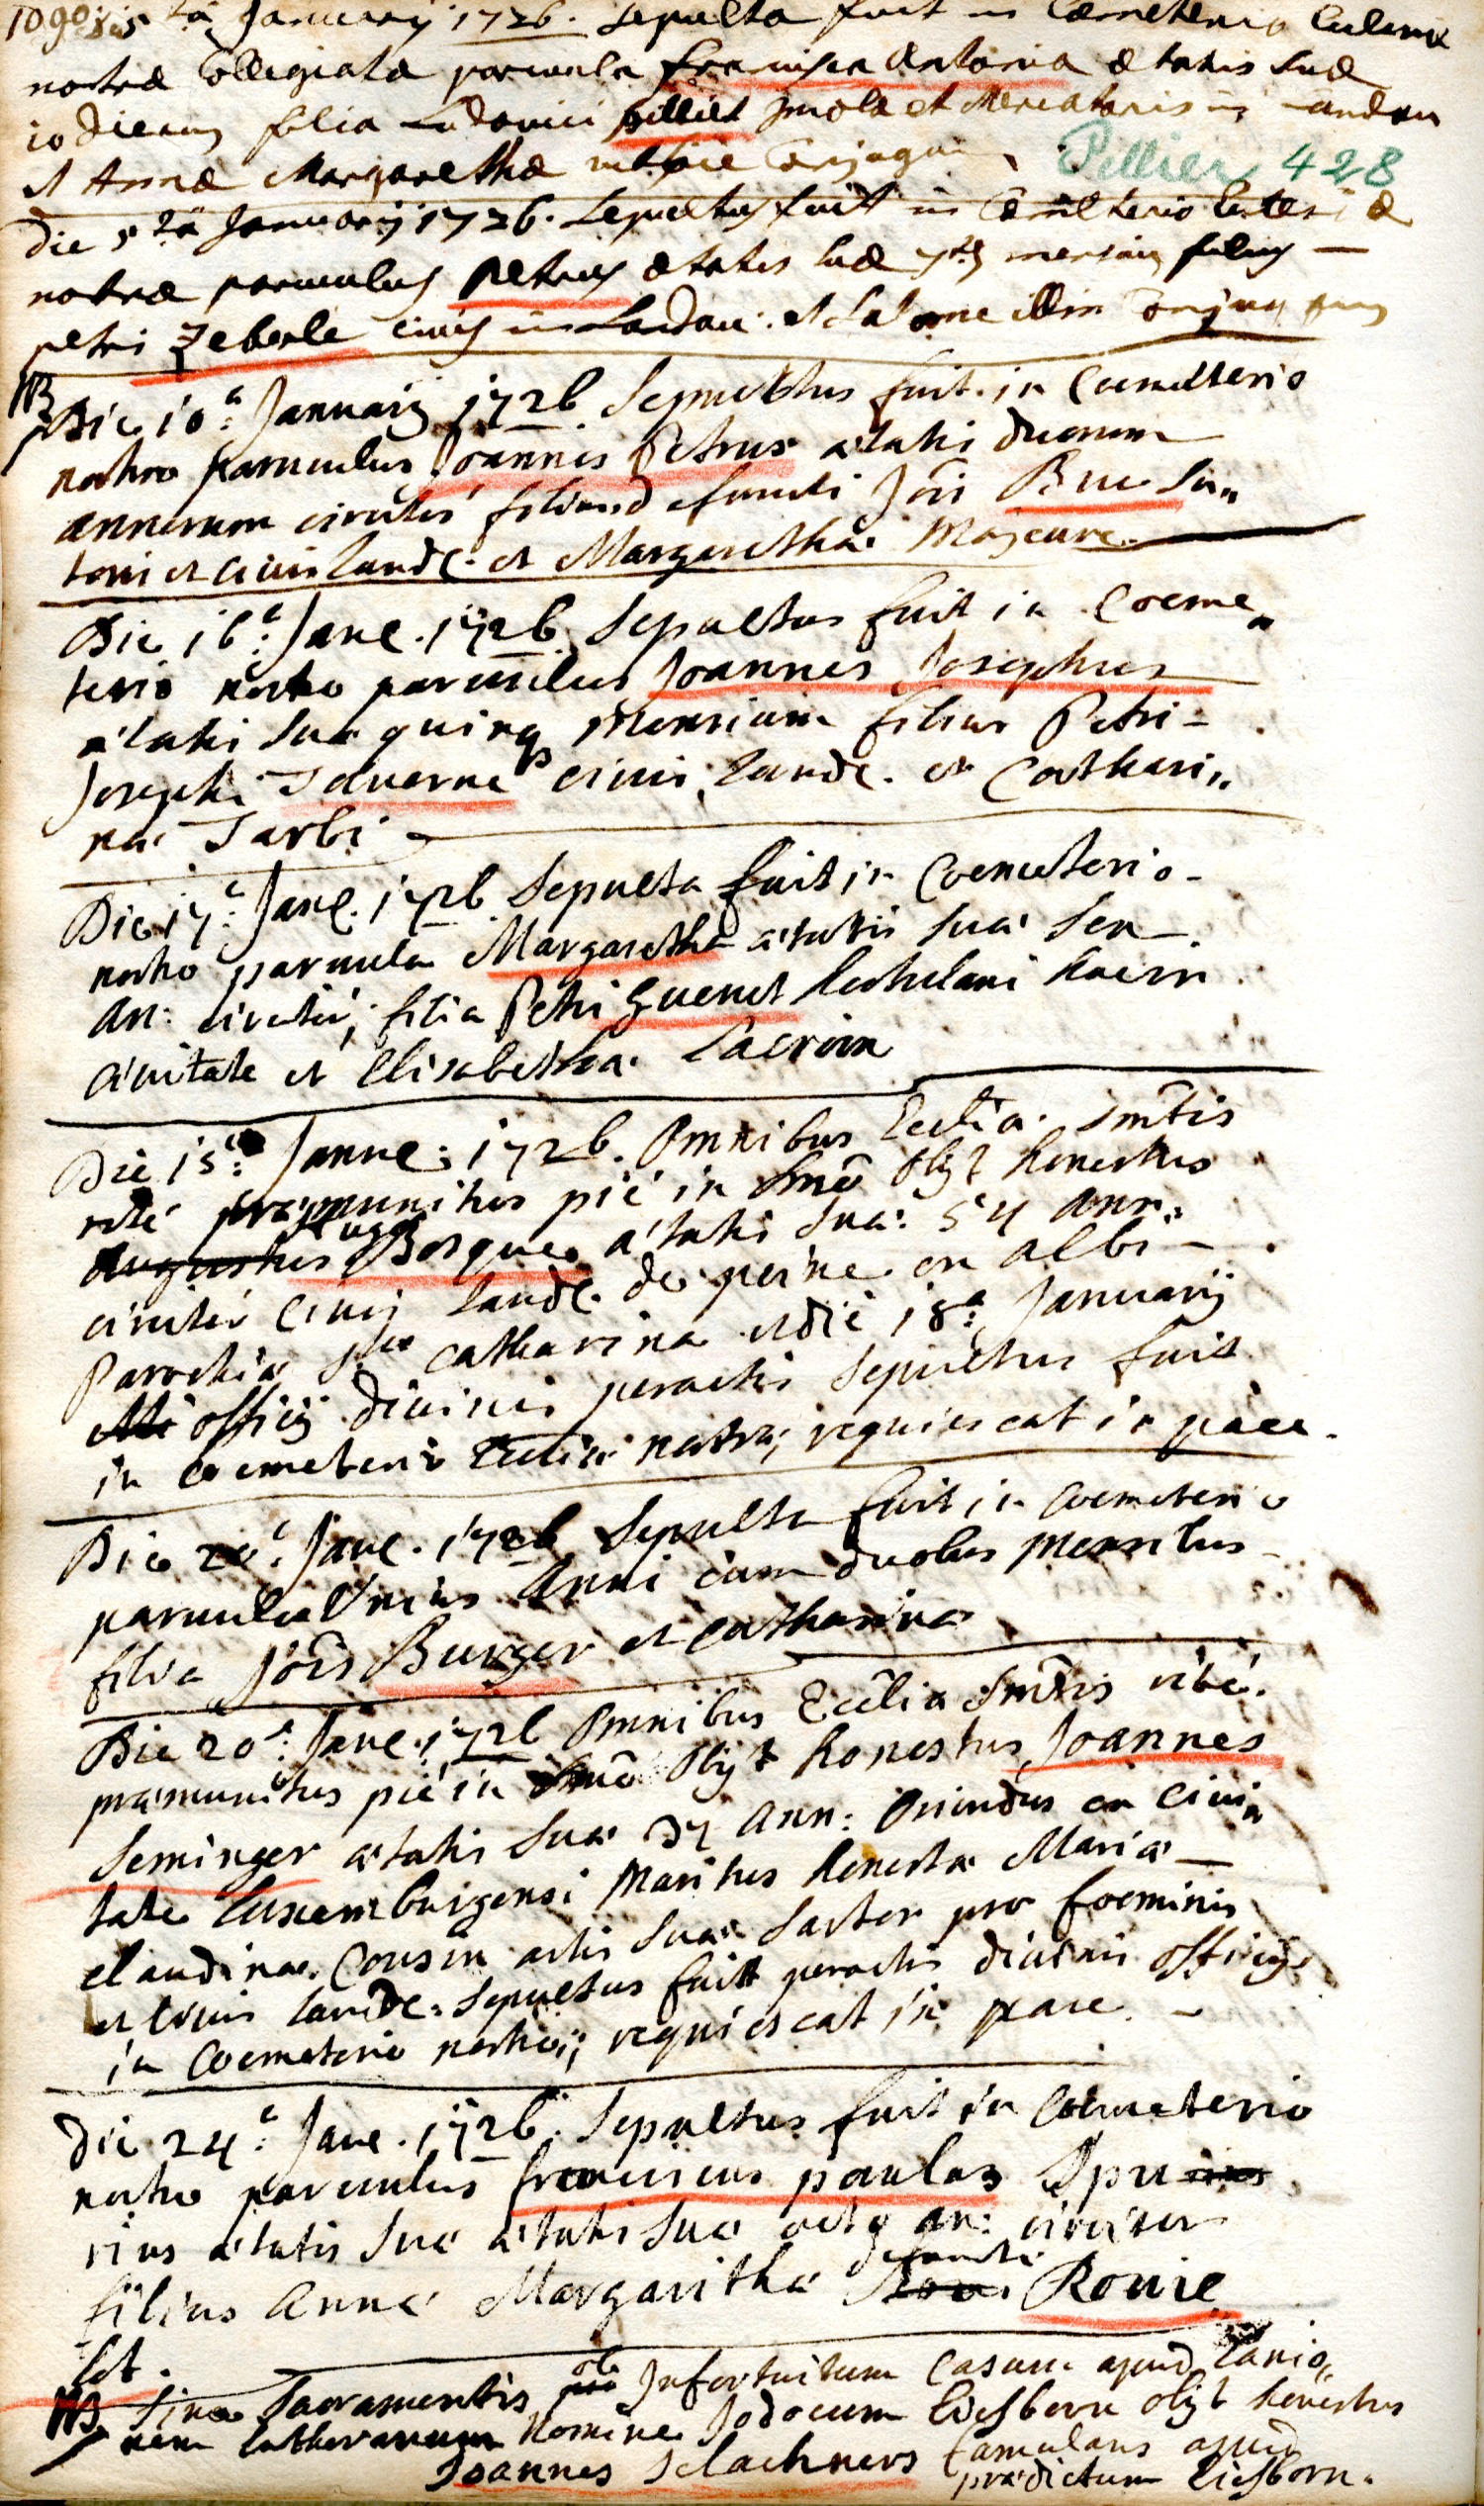 1090 die 5ta January 1726. Sepulta fuit in Coemeterio Eclesiæ
nostræ Collegiatæ parvula francisca Antonia ætatis suæ
10 dierum filia Ludovici pilliet et Mercatoris in Landau
et Annæ Margarethæ Conjugum
Pellier 428
Die 5ta January 1726. Sepultus fuit in Cœmiterio Eclesiæ
nostræ parvulus petrus ætatis suæ mensium filius —
petri Zeberle civis in Landau. et Salome Conjugum
NB
Die 10a: Januarij 1726 Sepultus fuit in Coemetterio
nostro parvulus Joannes Petrus ætatis duorum
annorum circiter filius defuncti Jōis Bue Su„
toris et civis Landc. et Margaretha Majeure.
Die 16a: Janr. 1726 Sepultus fuit in Coeme„
terio nostro parvulus Joannes Josephus
ætatis suæ quinq mensium filius Petri -
Josephi Taverne civis Landc. et Cathari„
næ Tarbi
Die 17a: Janr. 1726 Sepulta fuit in Coemeterio -
nostro parvula Margaretha ætatis suæ sex
an: circiter, filia Petri Guenet hac in
civitate et Elisabetha Lacroix
Die 15a: Janur: 1726. Omnibus Ecclia Smtis
rité præmunitus pié in Dmō obijt honestus
Augustus Bosque ætatis suæ 54 ann:
circiter Civis Landc. de peine en albi -
Parochia Stæ Catharina et die 18a: Januarij
officijs divinis peractis Sepultus fuit
in coemeterio Eccliæ nostræ; requiescat in pace.
Die 20a: Janr. 1726 Sepulta fuit in coemeterio
parvula Unius Anni cum duobus mensibus -
filia Jōis Burger et Catharina
Die 20a: Janr. 1726 Omnibus Eccliæ Smtis rité
præmunitus pié in Dmō obijt honestus Joannes
Seminger ætatis suæ 37 ann: oriundus ex civi„
tate Luxemburgensi Maritus honestæ Mariæ —
Claudinæ Cousin artis suæ Sartor pro foeminis
et civis Landc: Sepultus fuit peractis divinis officijs
in Coemeterio nostro; requiescat in pace. -
Die 24a: Janr. 1726. Sepultus fuit in Coemeterio
nostro parvulus franciscus paulus Spu
rius ætatis suæ ætatis suæ octo an: circiter
filius Annæ Margaritha Rouie
lot.
NB Sine Sacramentis ob Infortuitum Casum apud Lanio„
nem Lutheranum Nomine Jodocum Liesborn obijt honestus
Joannes Schachners famulans apud
prædictum Liesborn.